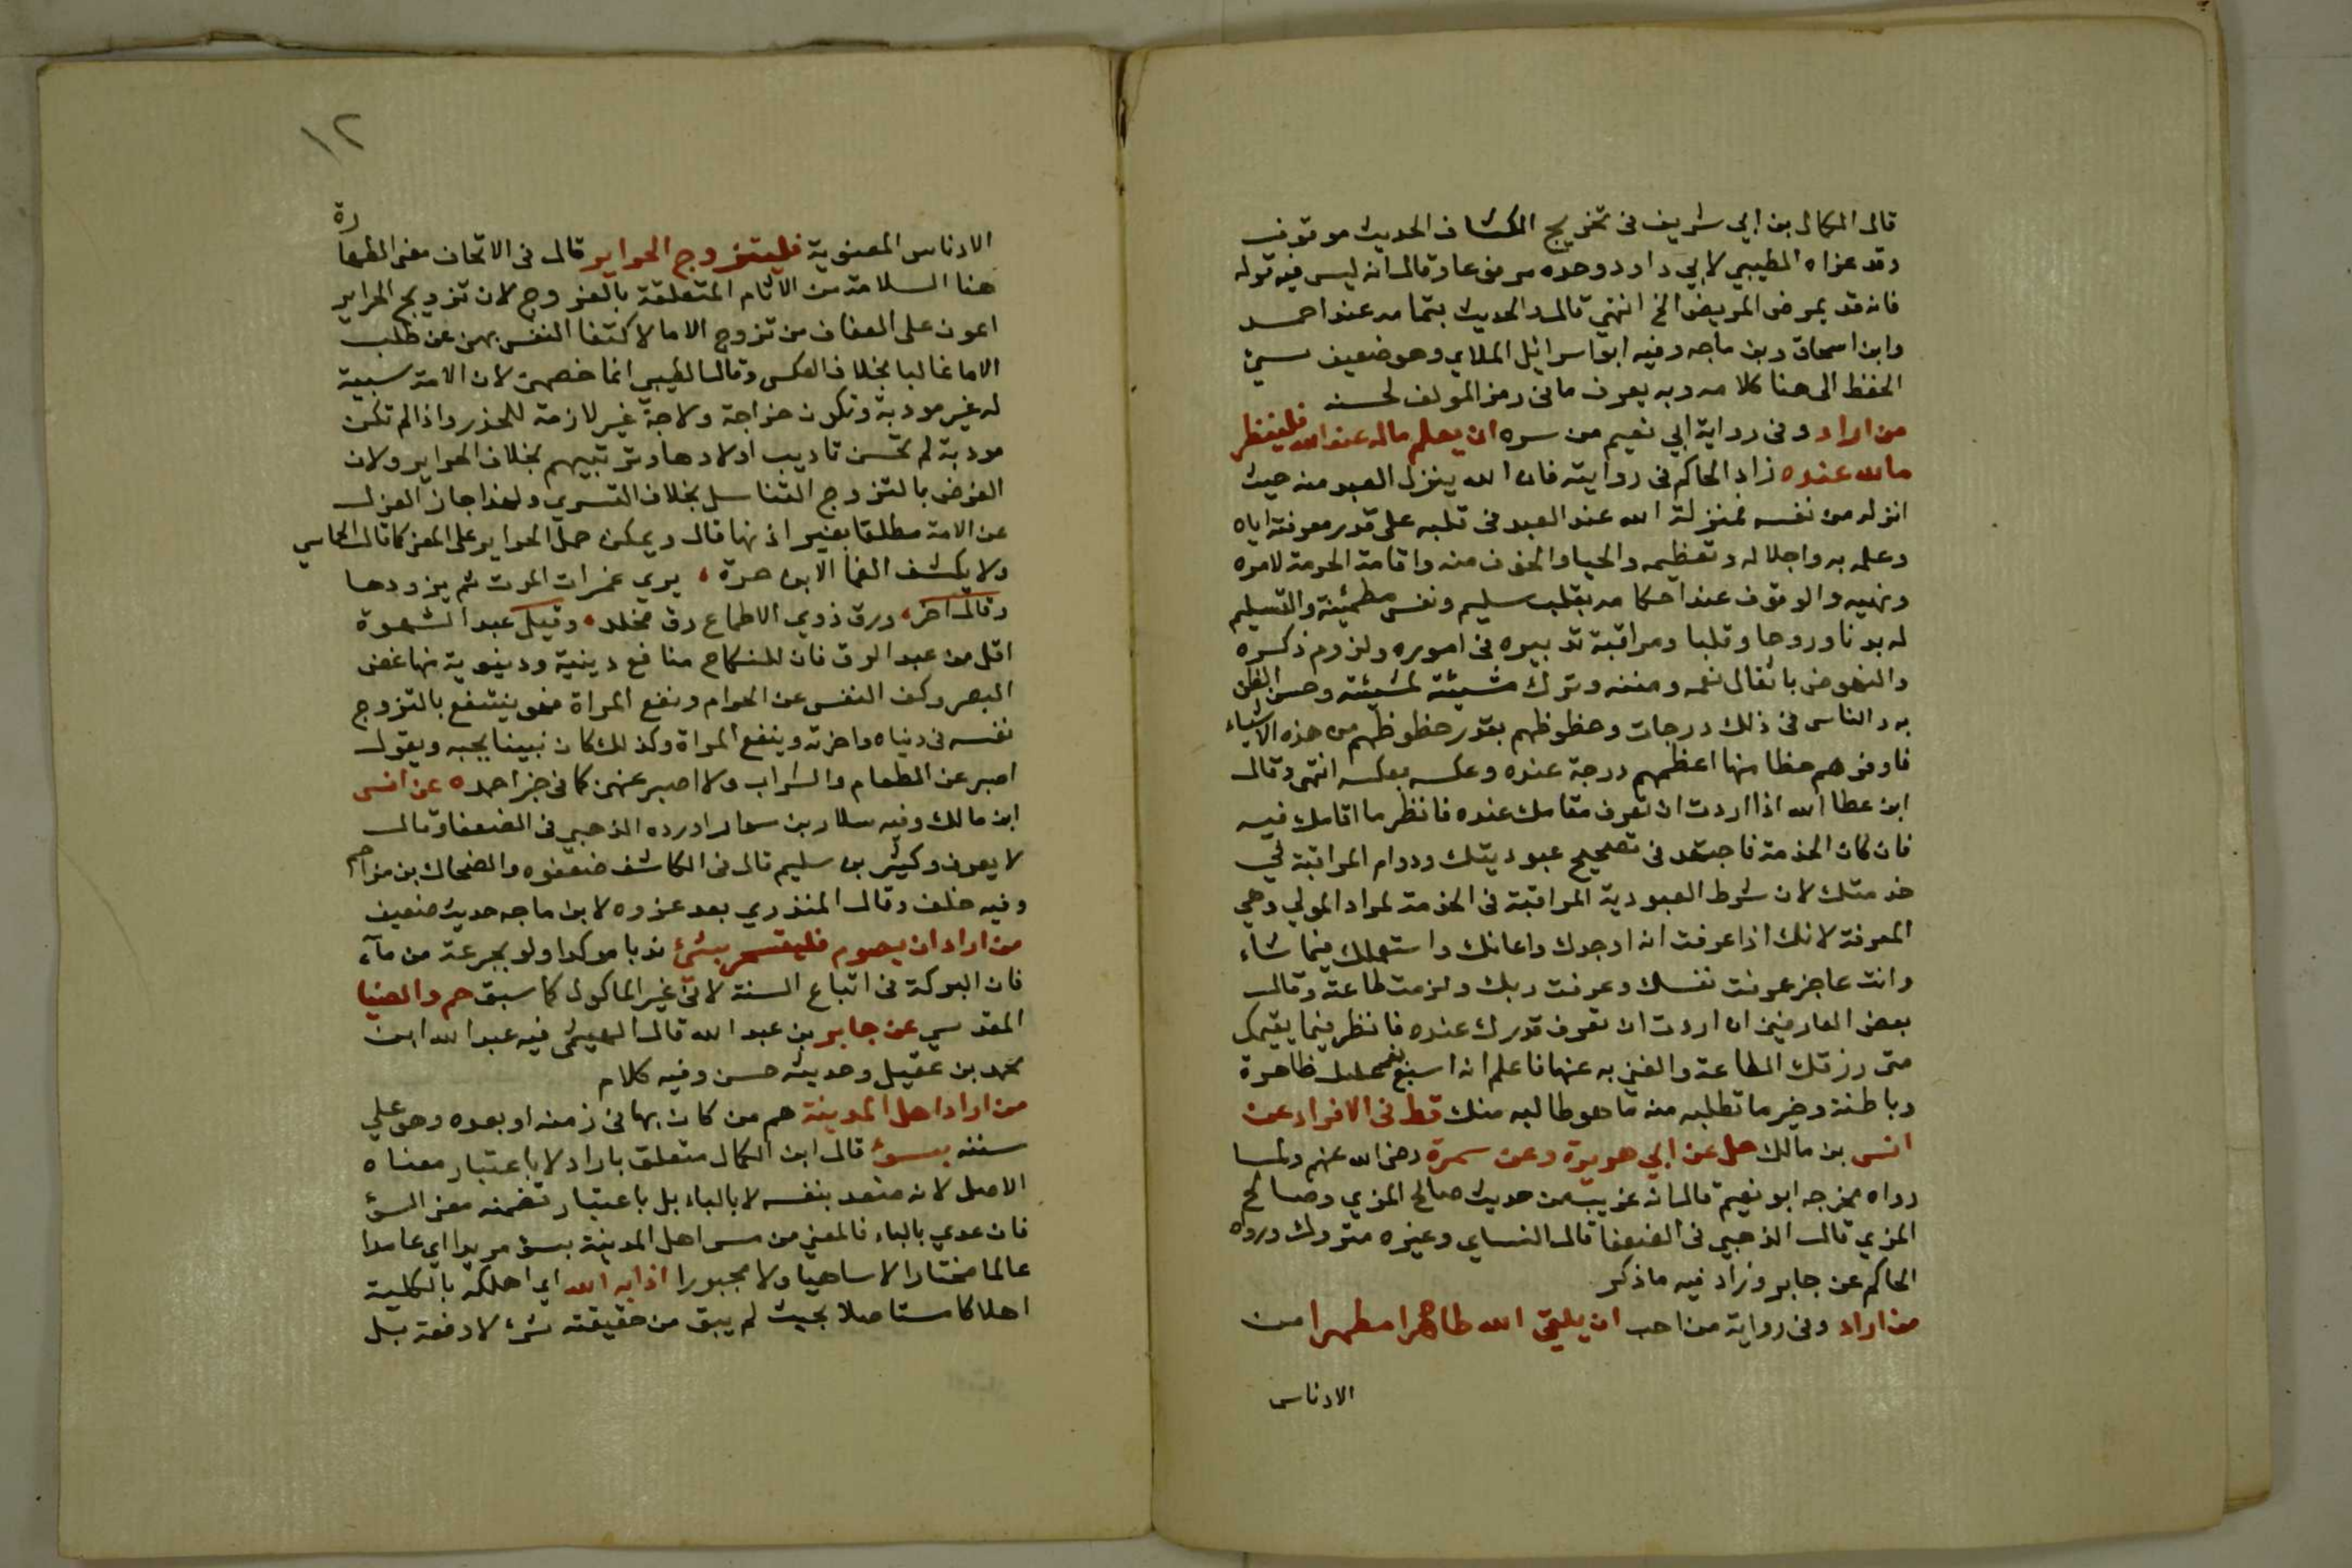 قال الكمال بن ابي شريف في تخريج الكشاف الحديث موقوف
وقد عزاه الطيبي لابي داود وحده مرفوعا وقال انه ليس فيه قوله
فانه قد يمرض المريض الخ انتهي قال والحديث بتمامه عند احمد
وابن اسحاق وبن ماجه وفيه ابو اسرائيل الملاي وهو ضعيف سيئ
الحفظ الى هنا كلامه وبه يعرف ما في رمز المولف لحسنه
من اراد وفى رواية ابي نعيم من سره ان يعلم ماله عند الله فلينظر
ما لله عنده زاد الحاكم في روايته فان الله ينزل العبد منه حيث
انزله من نفسه فمنزلة الله عند العبد في قلبه على قدر معرفته اياه
وعلمه به واجلاله وتعظيمه والحيا والخوف منه واقامة الحرمة لامره
ونهيه والوقوف عند احكامه بقلب سليم ونفس مطمئنة والتسليم
له بدنا وروحا وقلبا ومراقبة تدبيره في اموره ولزوم ذكره
والنهوض باثقال نعمه ومننه وترك مشيئته لمشيئته وحسن الظن
به والناس في ذلك درجات وحظوظهم بقدر حظوظهم من هذه الاشياء
فاوفرهم حظا منها اعظمهم درجة عنده وعكسه بعكسه انتهى وقال
ابن عطا الله اذا اردت ان تعرف مقامك عنده فانظر ما اقامك فيه
فان كان الخدمة فاجتهد في تصحيح عبوديتك ودوام المراقبة في
خدمتك لان شرط العبودية المراقبة في الخدمة لمراد المولي وهي
المعرفة لانك اذا عرفت انه اوجدك واعانك واستعملك فيما شاء
وانت عاجز عرفت نفسك وعرفت ربك ولزمت طاعته وقال
بعض العارفين ان اردت ان تعرف قدرك عنده فانظر فيما يقيمك
متى رزقك الطاعة والغنى به عنها فاعلم انه اسبغ نعمه عليك ظاهرة
وباطنة وخير ما تطلبه منه ما هو طالبه منك قط فى الافراد عن
انس بن مالك حل عن ابي هريرة وعن سمرة رضى الله عنهم ولما
رواه مخرجه ابو نعيم قال انه غريب من حديث صالح المزي وصالح
المزي قال الذهبي في الضعفا قال النساي وغيره متروك ورواه
الحاكم عن جابر وزاد فيه ما ذكر
من اراد وفى رواية من احب ان يلقى الله طاهرا مطهرا من
الادناس
١٢
الادناس المعنوية فليتزوج الحراير قال في الاتحاف معنى الطهارة
هنا السلامة من الاثام المتعلقة بالفروج لان تزويج الحراير
اعون على العفاف من تزوج الاما لاكتفا النفس بهن عن طلب
الاما غالبا بخلاف العكس وقال الطيبي انما خصهن لان الامة سبية
له غير مودبة وتكون خراجة ولاجة غير لازمة للخدر واذا لم تكن
مودبة لم تحسن تاديب اولادها وتربيتهم بخلاف الحراير ولان
الغرض بالتزوج التناسل بخلاف التسري ولهذا جاز العزل
عن الامة مطلقا بغير اذنها قال ويمكن حمل الحراير على المعنى كما قال الحماسي
ولا يكشف الغما الا ابن حرة ، يري غمرات الموت ثم يزورها
وقال اخر ، ورق ذوي الاطماع رق مخلد ، وقيل عبد الشهوة
اقل من عبد الرق فان للنكاح منافع دينية ودنيوية منها غض
البصر وكف النفس عن الحرام ونفع المراة فهو ينتفع بالتزوج
نفسه في دنياه واخرته وينفع المراة وكذلك كان نبينا يحبه ويقول
اصبر عن الطعام والشراب ولا اصبر عنهن كما في خبر احمد ه عن انس
ابن مالك وفيه سلار بن سوار اورده الذهبي في الضعفا وقال
لا يعرف وكثير بن سليم قال في الكاشف ضعفوه والضحاك بن مزاحم
وفيه خلف وقال المنذري بعد عزوه لابن ماجه حديث ضعيف
من اراد ان يصوم فليتسحر بشئ ندبا موكدا ولو بجرعة من مآء
فان البركة في اتباع السنة لا في غير الماكول كما سبق حم والضيا
المقدسي عن جابر بن عبد الله قال الهيثمى فيه عبد الله ابن
محمد بن عقيل وحديثه حسن وفيه كلام
من اراد اهل المدينة هم من كان بها في زمنه او بعده وهو علي
سنته بسوئ قال ابن الكمال متعلق باراد لا باعتبار معناه
الاصل لانه متعد بنفسه لا بالباء بل باعتبار تضمنه معنى المس
فان عدي بالباء فالمعنى من مس اهل المدينة بسوء مريدا اي عامدا
عالما مختارا لا ساهيا ولا مجبورا اذابه الله اي اهلكه بالكلية
اهلاكا مستاصلا بحيث لم يبق من حقيقته شئ لا دفعة بل